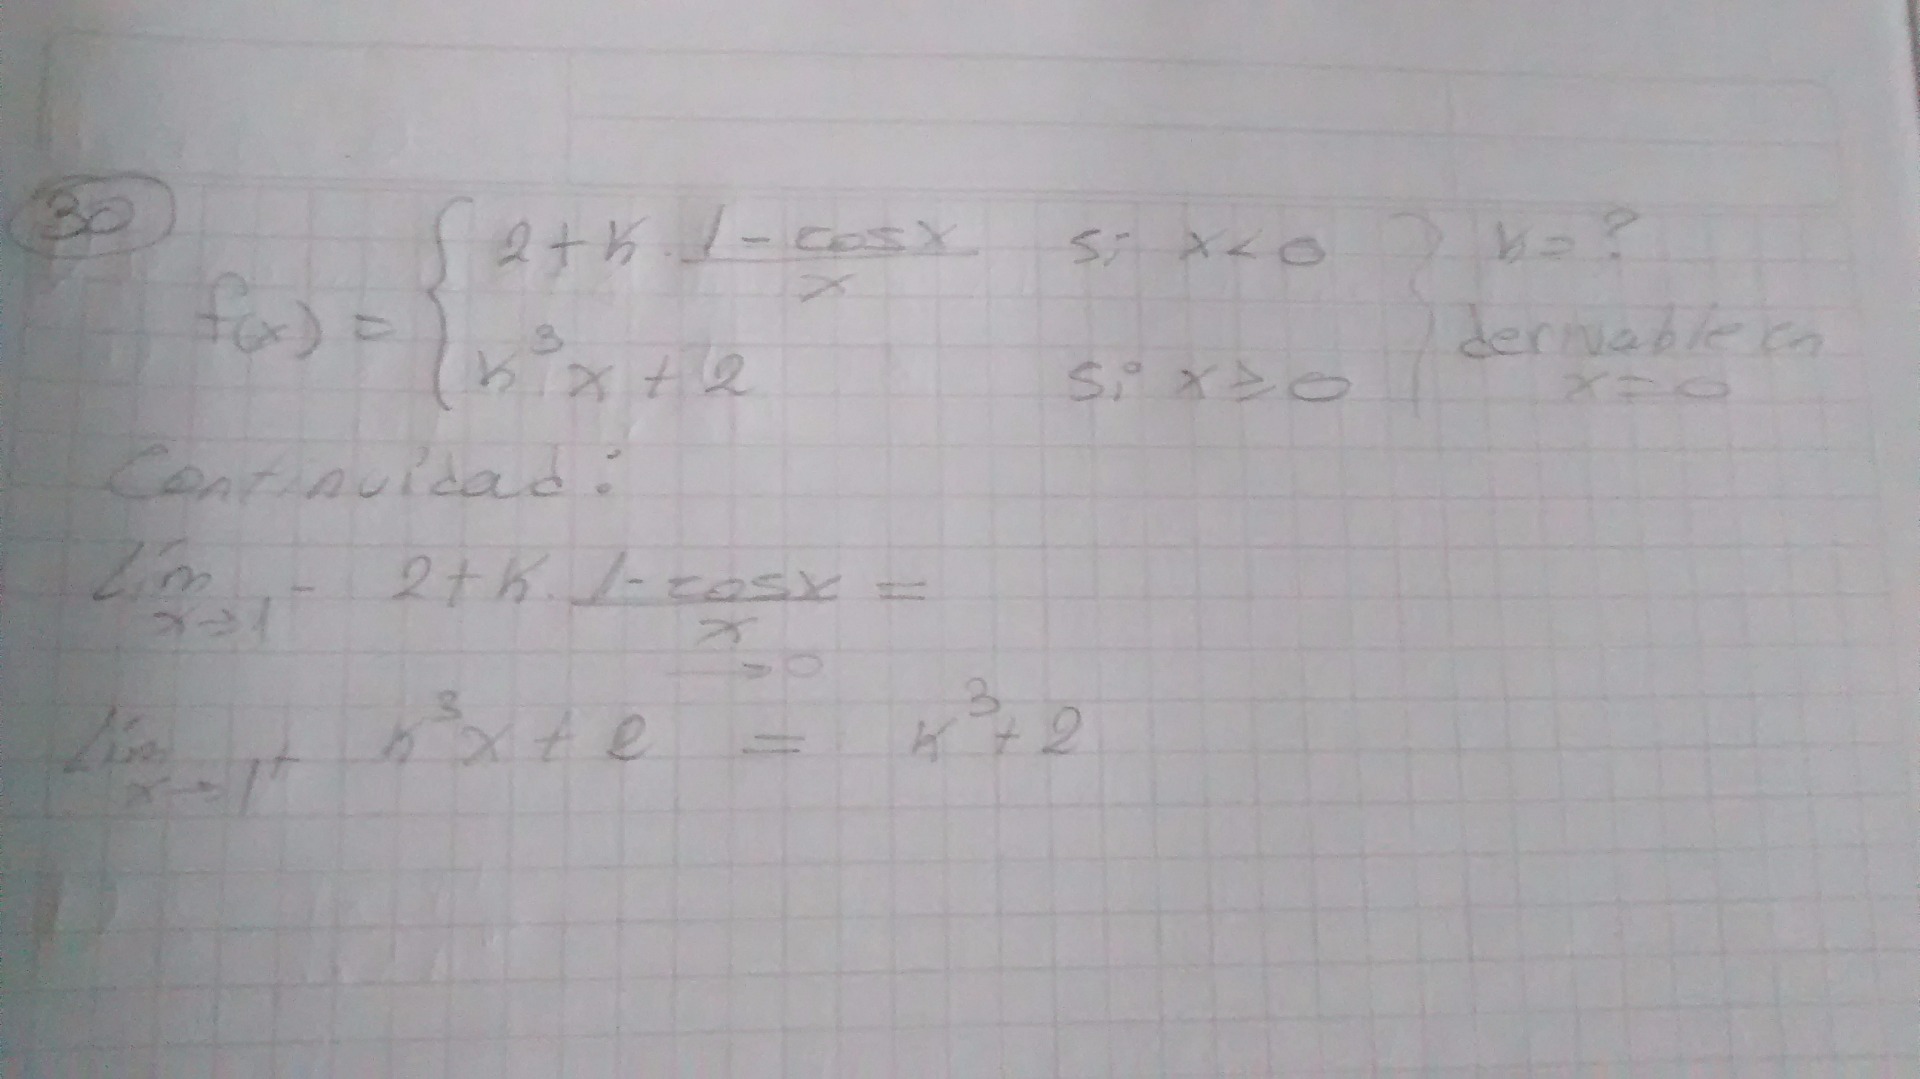 30
f(x) = { 2+k · (1-cosx)/x si x<0 } k=?
k³x+2 si x≥0 } derivable en x=0
Continuidad:
Lím x→1⁻ 2+k · (1-cosx)/x =
→0
Lím x→1⁺ k³x+2 = k³+2